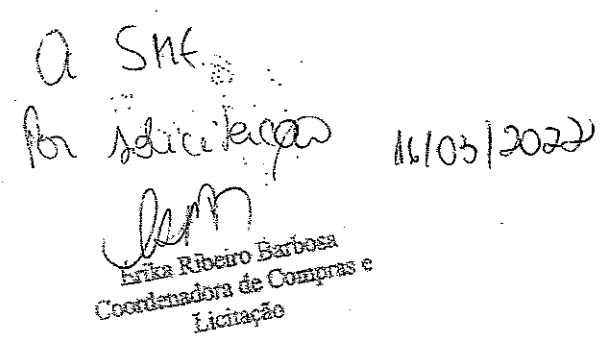 A SME
Por solicitação 16/03/2022
Erika Ribeiro Barbosa
Coordenadora de Compras e
Licitação